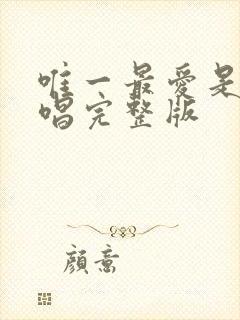 唯一最愛是
唱完整版
顏意